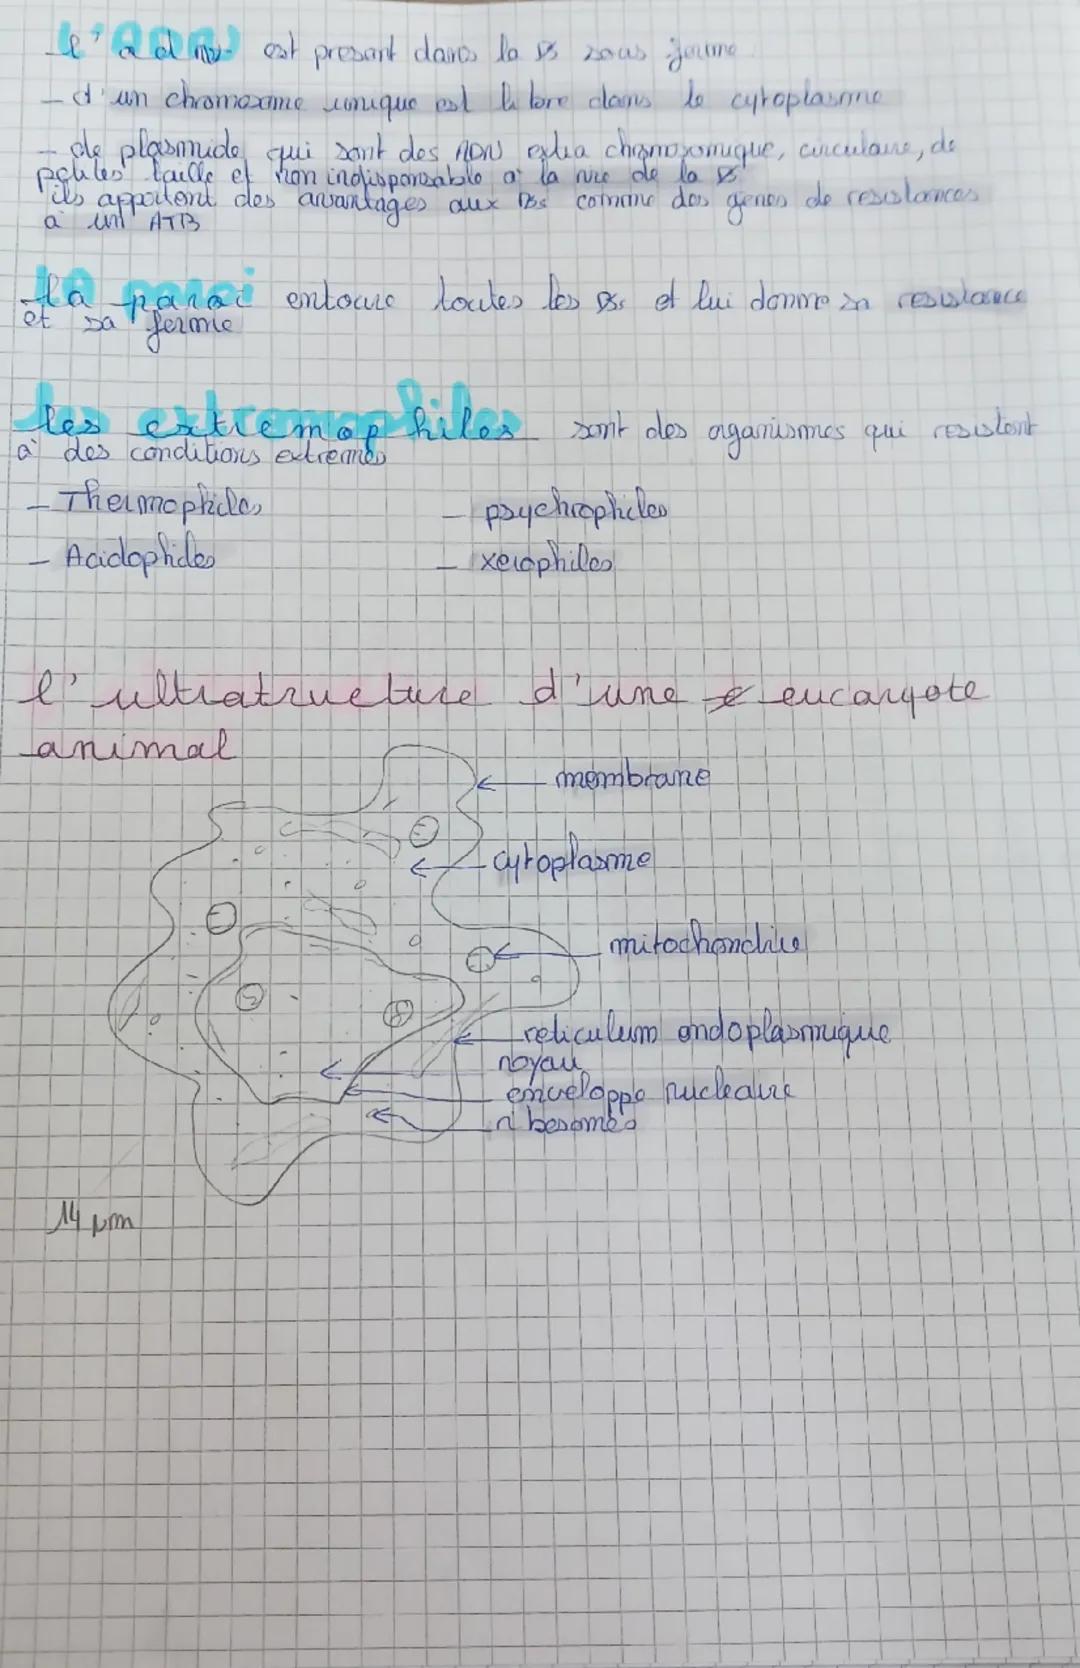 l'adn est present dans la B sous forme
- d'un chromosome unique est libre dans le cytoplasme
- de plasmide, qui sont des ADN extra chromosomique, circulaire, de
petites taille et non indisponsable a la vie de la B
ils apportent des avantages aux Bs comme des genes de resistances
a un ATB
la paroi entoure toutes les Bs et lui donne sa resistance
et sa forme
les extremophiles sont des organismes qui resistent
à des conditions extremes
- Thermophiles - psychrophiles
- Acidophiles - xerophiles
l'ultratructure d'une eucaryote
animal
membrane
cytoplasme
mitochondrie
reticulum endoplasmique
noyau
enveloppe nucleaire
ribosomes
14 µm